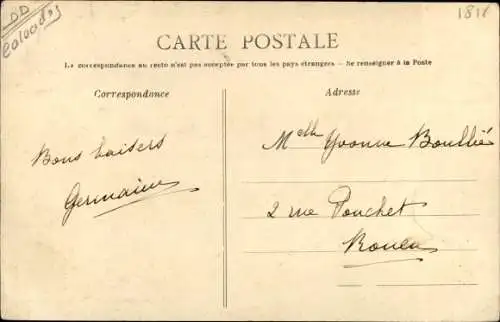 DD
Calvados
181
CARTE POSTALE
La correspondance au recto n'est pas acceptée par tous les pays étrangers — Se renseigner à la Poste
Correspondance
Adresse
Bons baisers
Germaine
Melle Yvonne Boullié
2 rue Pouchet
Rouen